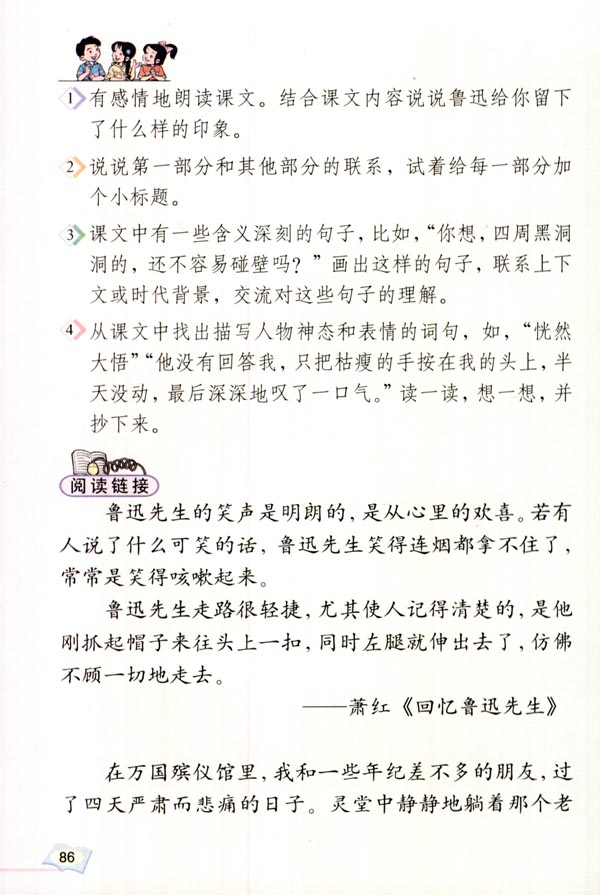 1 有感情地朗读课文。结合课文内容说说鲁迅给你留下
了什么样的印象。
2 说说第一部分和其他部分的联系，试着给每一部分加
个小标题。
3 课文中有一些含义深刻的句子，比如，“你想，四周黑洞
洞的，还不容易碰壁吗？”画出这样的句子，联系上下
文或时代背景，交流对这些句子的理解。
4 从课文中找出描写人物神态和表情的词句，如，“恍然
大悟”“他没有回答我，只把枯瘦的手按在我的头上，半
天没动，最后深深地叹了一口气。”读一读，想一想，并
抄下来。
阅读链接
鲁迅先生的笑声是明朗的，是从心里的欢喜。若有
人说了什么可笑的话，鲁迅先生笑得连烟都拿不住了，
常常是笑得咳嗽起来。
鲁迅先生走路很轻捷，尤其使人记得清楚的，是他
刚抓起帽子来往头上一扣，同时左腿就伸出去了，仿佛
不顾一切地走去。
——萧红《回忆鲁迅先生》
在万国殡仪馆里，我和一些年纪差不多的朋友，过
了四天严肃而悲痛的日子。灵堂中静静地躺着那个老
86